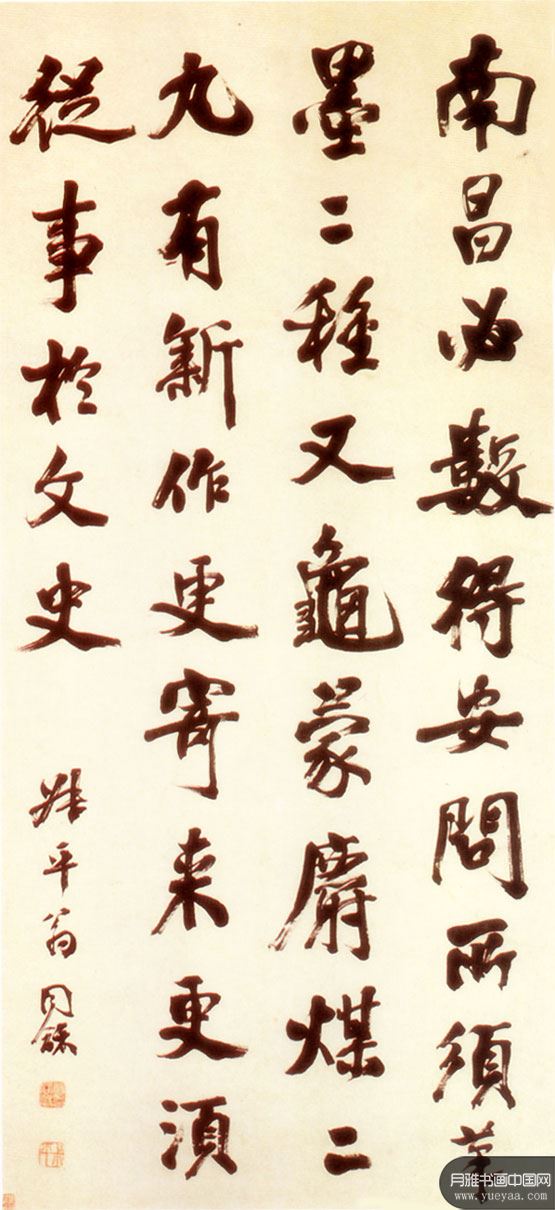 南昌必數得安問所須筆
墨二種又龜蒙麝煤二
九有新作更寄来更須
從事於文史
叔平翁同龢
月雅书画中国网
www.yueyaa.com